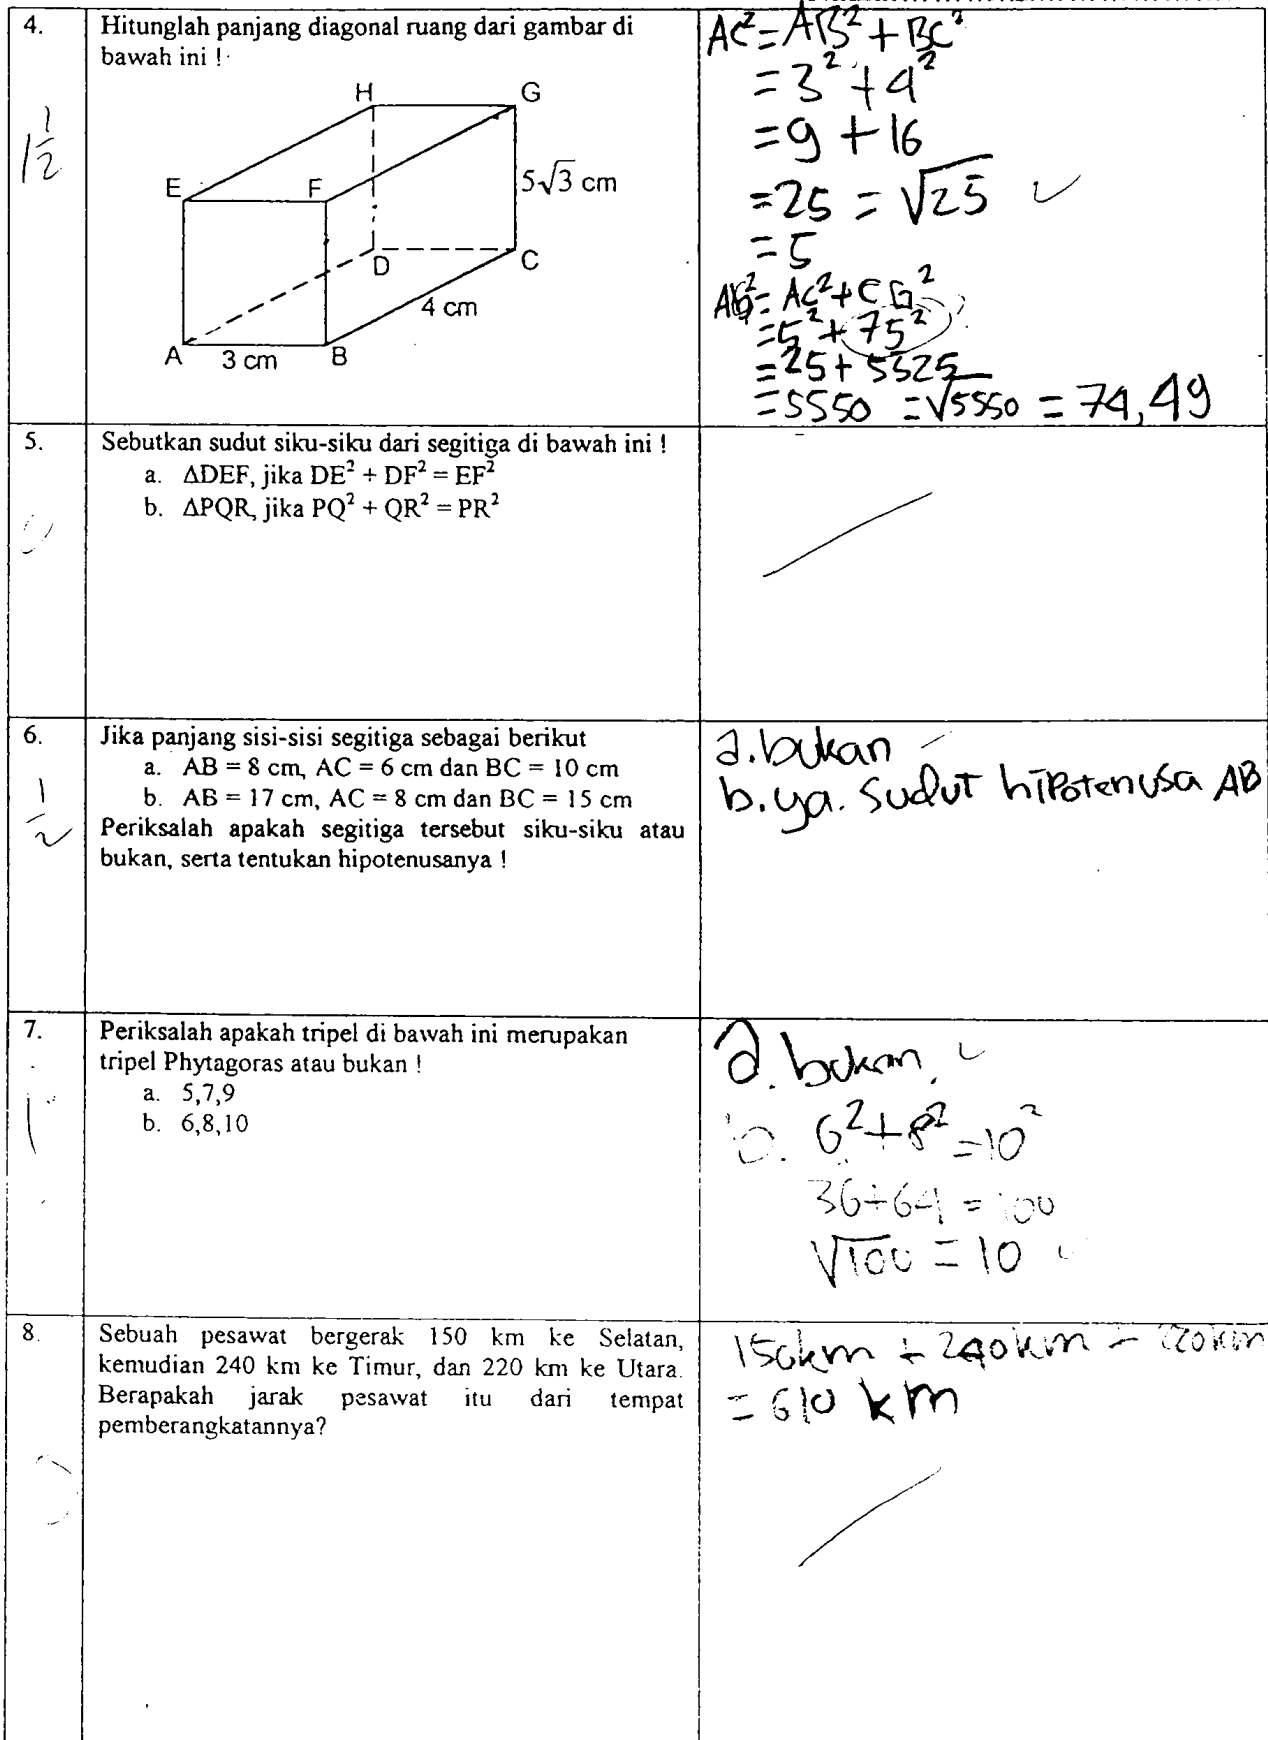 4.
1 1/2
Hitunglah panjang diagonal ruang dari gambar di
bawah ini !
H
G
E
F
5√3 cm
D
C
4 cm
A
3 cm
B
AC² = AB² + BC²
= 3² + 4²
= 9 + 16
= 25 = √25 ✓
= 5
AG² = AC² + CG²
= 5² + 75²
= 25 + 5525
= 5550 = √5550 = 74,49
5.
0
Sebutkan sudut siku-siku dari segitiga di bawah ini !
a. ΔDEF, jika DE² + DF² = EF²
b. ΔPQR, jika PQ² + QR² = PR²
6.
1/2
Jika panjang sisi-sisi segitiga sebagai berikut
a. AB = 8 cm, AC = 6 cm dan BC = 10 cm
b. AB = 17 cm, AC = 8 cm dan BC = 15 cm
Periksalah apakah segitiga tersebut siku-siku atau
bukan, serta tentukan hipotenusanya !
a. bukan
b. ya. sudut hipotenusa AB
7.
1
Periksalah apakah tripel di bawah ini merupakan
tripel Phytagoras atau bukan !
a. 5,7,9
b. 6,8,10
a. bukan. ✓
b. 6² + 8² = 10²
36 + 64 = 100
√100 = 10
8.
Sebuah pesawat bergerak 150 km ke Selatan,
kemudian 240 km ke Timur, dan 220 km ke Utara.
Berapakah jarak pesawat itu dari tempat
pemberangkatannya?
150km + 240km - 220km
= 610 km